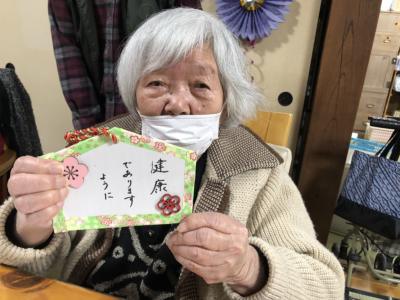 健康
でありますように